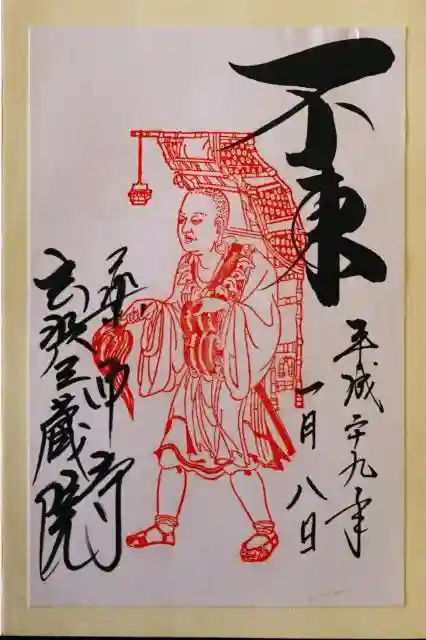 不東
平成二十九年
一月八日
薬師寺
玄奘三蔵院